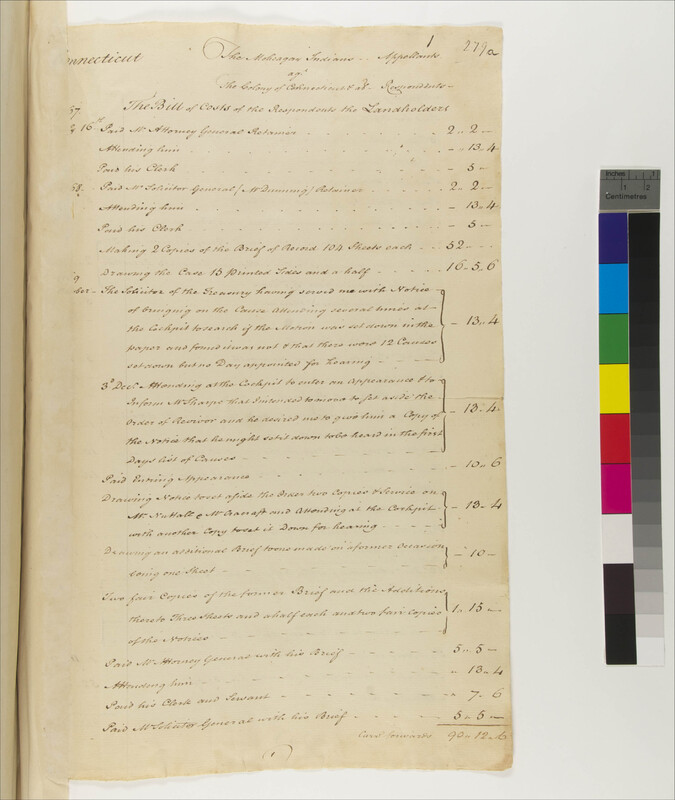 1 279a
onnecticut The Moheagan Indians .. Appellants
agt
The Colony of Connecticut & al Respondents
The Bill of Costs of the Respondents the Landholders
67.
16th Paid Mr Attorney General Retainer 2 .. 2 —
Attending him — 13 .. 4
Paid his Clerk — 5 —
68. Paid Mr Solicitor General (Mr Dunning) Retainer 2 .. 2 —
Attending him — 13 .. 4
Paid his Clerk — 5 —
Making 2 Copies of the Brief of Record 104 Sheets each 52 ..
Drawing the Case 15 printed Sides and a half 16 .. 5 .. 6
ber — The Solicitor of the Treasury having served me with Notice
of bringing on the Cause Attending several times at
the Cockpit to search if the Motion was set down in the
paper and found it was not & that there were 12 Causes
set down but no Day appointed for hearing — — 13 .. 4
3d Decr Attending at the Cockpit to enter an Appearance & to
Inform Mr Sharpe that I intended to move to set aside the
Order of Revivor and he desired me to give him a Copy of
the Notice that he might set it down to be heard in the first
Days list of Causes — — 13 .. 4
Paid Entring Appearance — 10 .. 6
Drawing Notice to set aside the Order two Copies & Service on
Mr Nuttall & Mr Cracraft and Attending at the Cockpit
with another Copy to set it Down for hearing — 13 .. 4
Drawing an additional Brief to one made on a former Occasion
being one Sheet — — 10 —
Two fair Copies of the former Brief and the Additions
thereto Three Sheets and a half each and two fair Copies
of the Notices — 1 .. 15 —
Paid Mr Attorney General with his Brief 5 .. 5 —
Attending him — 13 .. 4
Paid his Clerk and Servant — 7 .. 6
Paid Mr Solicitor General with his Brief 5 .. 5 —
Card forwards 90 .. 12 .. 6
(1)
Inches
1 2
Centimetres